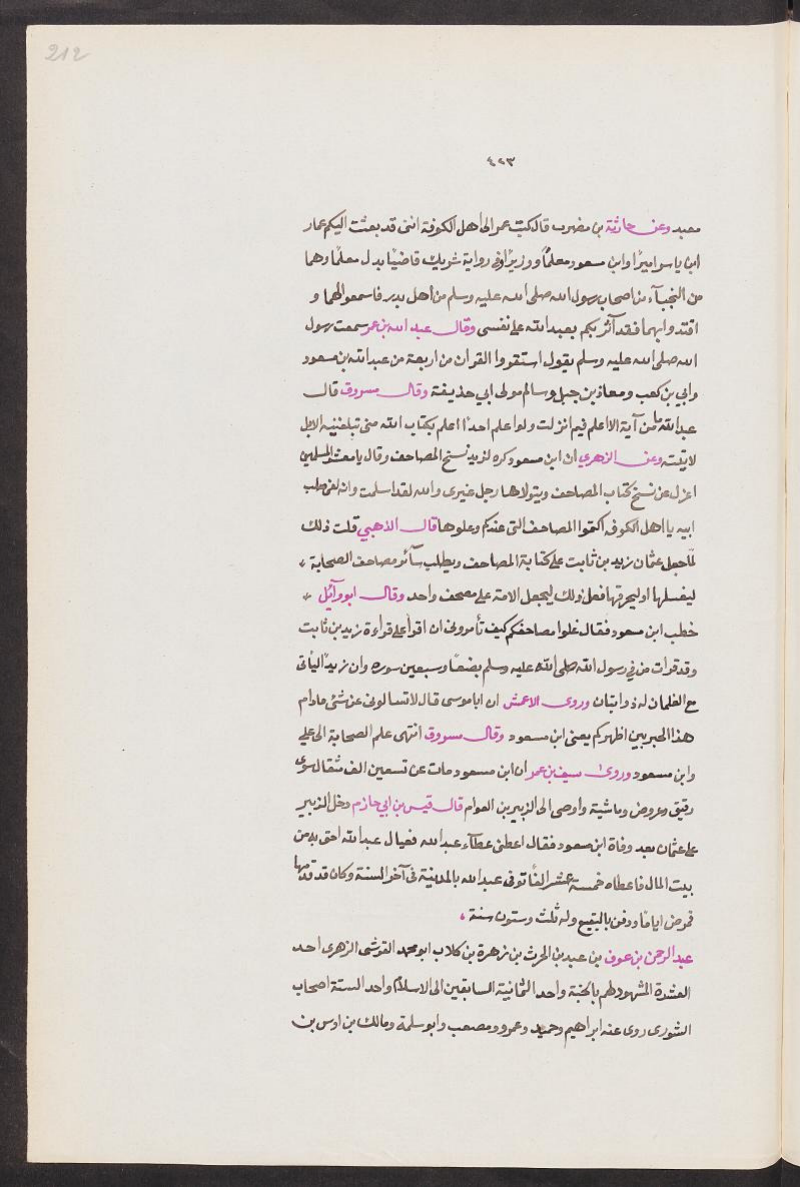 212
٤٢٣
معبد وعن حارثة بن مضرب قال كتب عمر الى اهل الكوفة انني قد بعثت اليكم عمار
ابن ياسر اميرًا وابن مسعود معلمًا ووزيرًا وفي رواية شريك قاضيًا بدل معلمًا وهما
من النجبآء من اصحاب رسول الله صلى الله عليه وسلم من اهل بدر فاسمعوا لهما و
اقتدوا بهما فقد آثرتكم بعبد الله على نفسي وقال عبد الله بن عمر سمعت رسول
الله صلى الله عليه وسلم يقول استقروا القران من اربعة من عبد الله بن مسعود
وابي بن كعب ومعاذ بن جبل وسالم مولى ابي حذيفة وقال مسروق قال
عبد الله ما من آية الا اعلم فيم انزلت ولو اعلم احدًا اعلم بكتاب الله مني تبلغنيه الابل
لاتيته وعن الزهري ان ابن مسعود كره لزيد نسخ المصاحف وقال يا معشر المسلمين
اعزل عن نسخ كتاب المصاحف ويتولاها رجل غيرى والله لقد اسلمت وانه لفي صلب
ابيه يا اهل الكوفه اكتموا المصاحف التى عندكم وغلوها قال الذهبي قلت ذلك
لما جعل عثمان زيد بن ثابت على كتابة المصاحف ويطلب سآئر مصاحف الصحابة
ليغسلها او ليحرقها فعل ذلك ليجعل الامة على مصحف واحد وقال ابو وآئل
خطب ابن مسعود فقال غلوا مصاحفكم كيف تأمرونى ان اقرأ على قراءة زيد بن ثابت
وقد قرات من في رسول الله صلى الله عليه وسلم بضعًا وسبعين سوره وان زيدًا ليأتى
مع الغلمان له ذوابتان وروى الاعمش ان ابا موسى قال لا تسالونى عن شئ مادام
هذا الحبر بين اظهركم يعني ابن مسعود وقال مسروق انتهى علم الصحابة الى علي
وابن مسعود وروى سيف بن عمر ان ابن مسعود مات عن تسعين الف مثقال سوى
رقيق وعروض وماشية واوصى الى الزبير بن العوام قال قيس بن ابي حازم دخل الزبير
على عثمان بعد وفاة ابن مسعود فقال اعطني عطآء عبد الله فعيال عبد الله احق به من
بيت المال فاعطاه خمسة عشر الفًا توفى عبد الله بالمدينة في آخر السنة وكان قد قدمها
فمرض اياما ودفن بالبقيع وله ثلث وستون سنة
عبد الرحمن بن عوف بن عبد بن الحرث بن زهرة بن كلاب ابو محمد القرشى الزهرى احد
العشرة المشهود لهم بالجنة واحد الثمانية السابقين الى الاسلام واحد الستة اصحاب
الشورى روى عنه ابراهيم وحميد وعمرو ومصعب وابو سلمة ومالك بن اوس بن